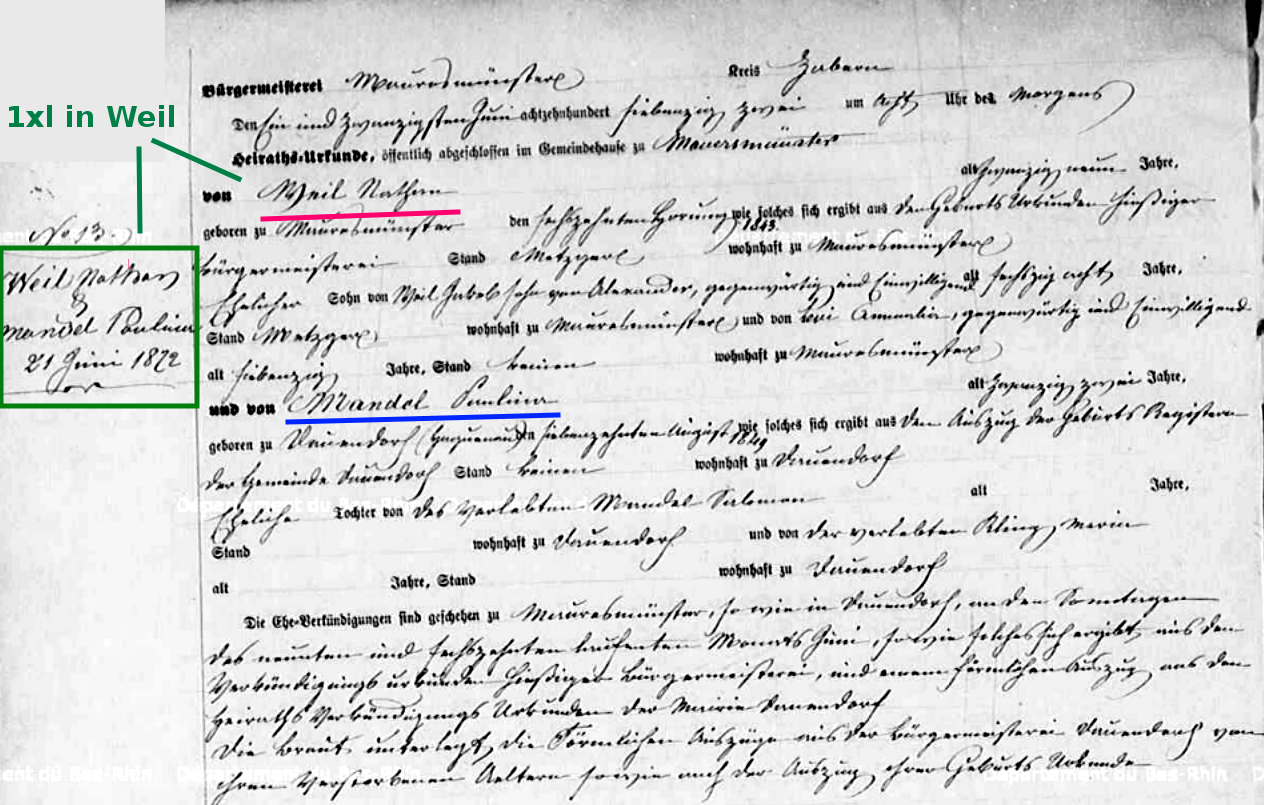 Bürgermeisterei Mauresmünster Kreis Zabern
Den Ein und Zwanzigsten Juni achtzehnhundert siebenzig zwei um Acht Uhr des Morgens
1xl in Weil
Heiraths-Urkunde, öffentlich abgeschlossen im Gemeindehause zu Mauersmünster
von Weil Nathan alt Zwanzig neun Jahre,
geboren zu Mauresmünster den sechszehnten Hornung 1843. wie solches sich ergibt aus den Geburts Urkunden hießiger
Bürgermeisterei Stand Metzger wohnhaft zu Mauresmünster
Ehelicher Sohn von Weil Jakob sohn von Alexander, gegenwärtig und Einwilligend alt sechszig acht Jahre,
Stand Metzger wohnhaft zu Mauresmünster und von Levi gegenwärtig und Einwilligend
alt siebenzig Jahre, Stand keinen wohnhaft zu Mauresmünster
No 13
Weil Nathan
&
Mandel Paulina
21 Juni 1872
und von Mandel Paulina alt Zwanzig zwei Jahre,
geboren zu Dauendorf (Haguenau) den siebenzehnten August 1849 wie solches sich ergibt aus dem Auszug der Geburts Registern
der Gemeinde Dauendorf Stand keinen wohnhaft zu Dauendorf
Eheliche Tochter von des verlebten Mandel Salomon alt Jahre,
Stand wohnhaft zu Dauendorf und von der verlebten Kling Maria
alt Jahre, Stand wohnhaft zu Dauendorf
Die Ehe-Verkündigungen sind geschehen zu Mauresmünster, so wie in Dauendorf, an den Sonntagen
des neunten und sechszehnten laufenden Monats Juni, so wie solches sich ergibt aus den
Verkündigungs urkunden hießiger Bürgermeisterei, und einem förmlichen Auszug aus den
Heiraths Verkündigungs Urkunden der Mairie Dauendorf
Die Braut unterlegt die Förmlichen Auszüge aus der Bürgermeisterei Dauendorf von
ihren Verstorbenen Aeltern so wie auch der Auszug ihrer Geburts Urkunde
Departement du Bas-Rhin